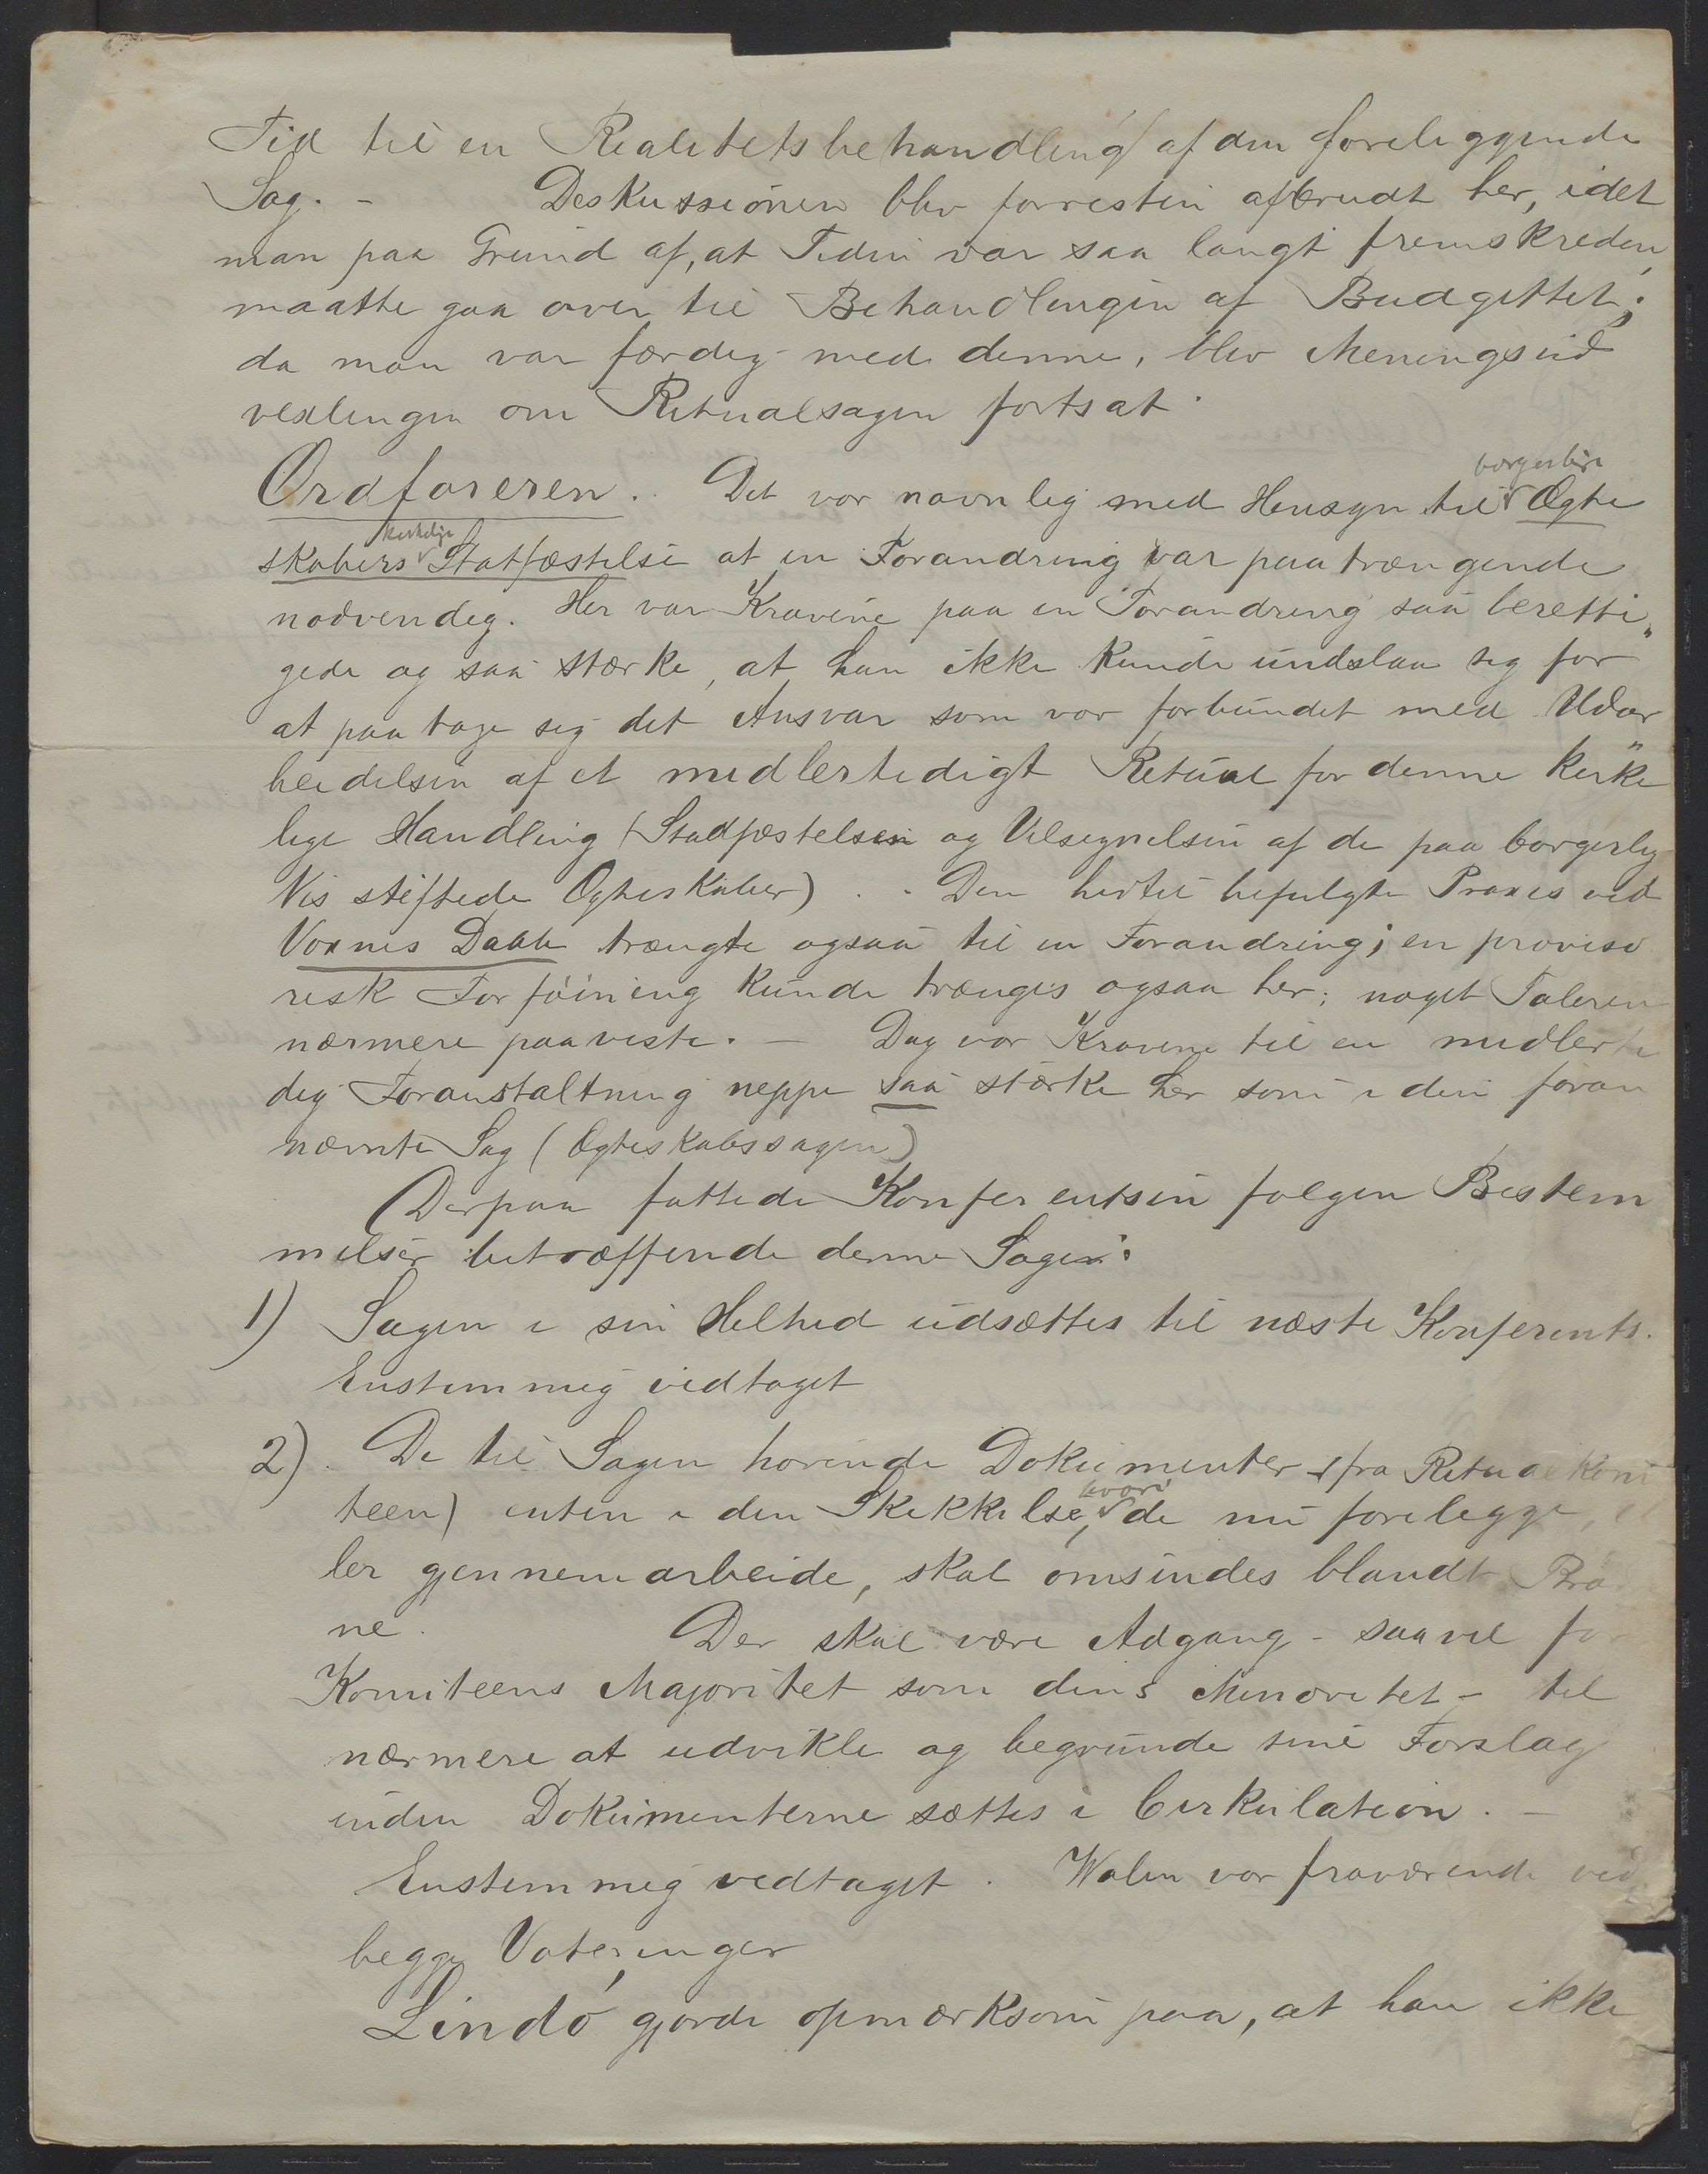 Tid til en Realitetsbehandling af den foreliggende
Sag. - Deskussionen blev forresten afbrudt her, idet
man paa Grund af, at Tiden var saa langt fremskreden,
maatte gaa over til Behandlingen af Budgettet;
da man var færdig med denne, blev Meningsud
vexlingen om Ritualsagen fortsat.
borgerlige
Ordføreren. Det var navnlig med Hensyn til Ægte
kirkelige
skabers Statfæstelse at en Forandring var paatrængende
nødvendig. Her var Kravene paa en Forandring saa beretti„
gede og saa stærke, at han ikke kunde undslaa sig for
at paatage sig det Ansvar som var forbundet med Udar
beidelsen af et midlertidigt Ritual for denne kirke„
lige Handling (Stadfæstelsen og Velsignelsen af de paa borgerlig
Vis stiftede Ægteskaber). - Den hertil befulgte Praxis ved
Voxnes Daab trængte ogsaa til en Forandring; en proviso
risk Forføining kunde trænges ogsaa her; noget Taleren
nærmere paaviste. - Dog var Kravene til en midlerti
dig Foranstaltning neppe saa stærke her som i den foran
nævnte Sag (Ægteskabssagen)
Derpaa fattede Konferentsen følgen Bestem
melser betræffende denne Sagen:
1) Sagen i sin Helhed udsættes til næste Konferents.
Enstemmig vedtaget
2). De til Sagen hørende Dokumenter (fra Ritualkomi
hvori
teen) enten i den Skikkelse, de nu foreligge, el
ler gjennemarbeide, skal omsendes blandt Brø
ne. Der skal være Adgang - saavel for
Komiteens Majoritet som dens Minoritet - til
nærmere at udvikle og begrunde sine Forslag
inden Dokumenterne sættes i Cirkulation. -
Enstemmig vedtaget. Walen var fraværende ved
begge Voteringer
Lindø gjorde opmærksom paa, at han ikke